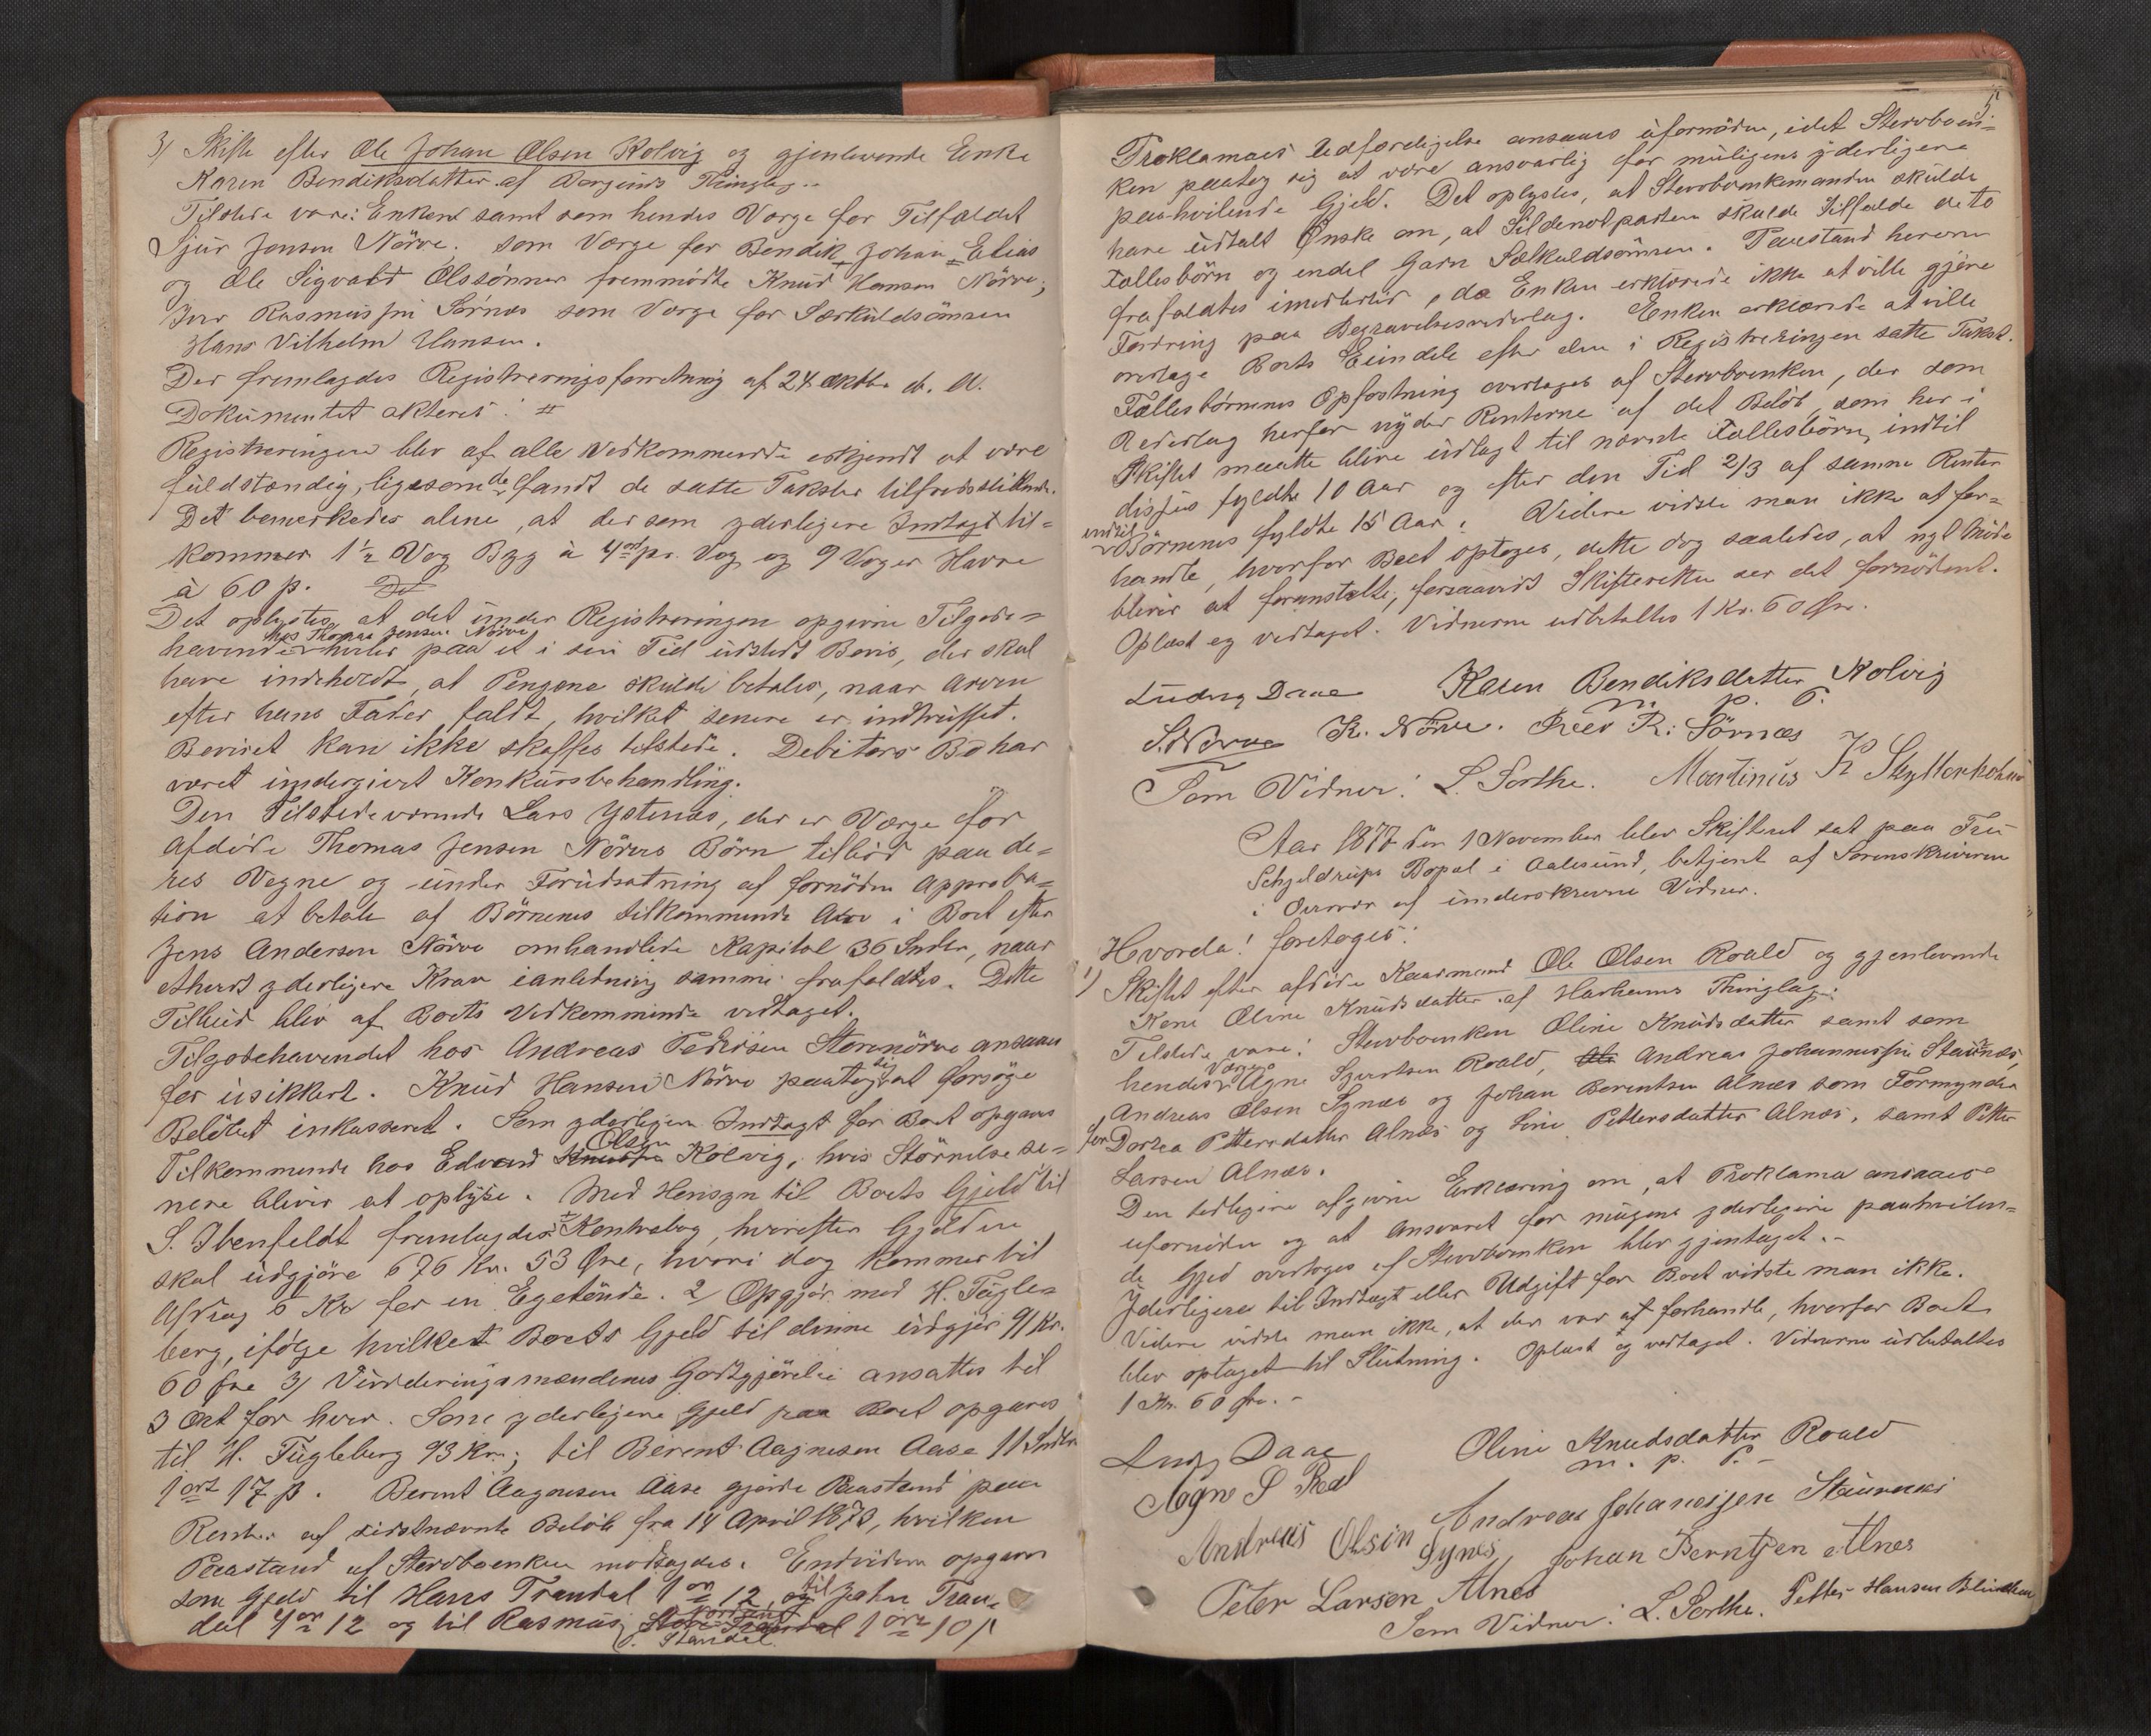 3/ Skifte efter Ole Johan Olsen Kolvig og gjenlevende Enke
Karen Bendiksdatter af Borgunds Thinglag.
Tilstede vare: Enken samt som hendes Værge for Tilfældet
Sjur Jensen Nörve, som Værge for Bendik, Johan Elias
og Ole Sigvald Olssønner fremmödte Knud Hansen Nörve,
Iver Rasmussen Sørnæs som Værge for Særkuldsönnen
Hans Vilhelm Hansen.
Der fremlagdes Registreringsforretning af 24 Oktbr d. A.
Dokumentet akteres: #
Registreringen blev af alle Vedkommende erkjendt at være
fuldstændig, ligesom de fandt de satte Takster tilfredsstillende.
Det bemerkedes alene, at der som yderligere Indtægt til-
kommer 1½ Vog Byg à 4 ort pr. Vog og 9 Voger Havre
à 60 β.
Det oplystes, at det under Registreringen opgivne Tilgode-
havende hos Thomas Jensen Nörve hviler paa et i sin Tid udstedt Bevis, der skal
have indeholdt, at Pengene skulde betales, naar Arven
efter hans Fader faldt, hvilket senere er indtruffet.
Beviset kan ikke skaffes tilstede. Debitors Bo har
været undergivet Konkursbehandling.
Den Tilstedeværende Lars Ystenæs, der er Værge for
afdöde Thomas Jensen Nörves Börn tilböd paa de-
res Vegne og under Forudsætning af fornöden Approba-
tion at betale af Börnenes tilkommende Arv i Boet efter
Jens Andersen Nörve omhandlede Kapital 36 Spdlr, naar
ethvert yderligere Krav i anledning samme frafaldtes. Dette
Tilbud blev af Boets Vedkommende vedtaget.
Tilgodehavendet hos Andreas Pedersen Storenörve ansaaes
for usikkert. Knud Hansen Nörve paatog sig at forsöge
Belöbet inkasseret. Som yderligere Indtægt for Boet opgaves
Tilkommende hos Edvard Olsen Kolvig, hvis Störrelse se-
nere bliver at oplyse. Med Hensyn til Boets Gjeld til
S. Ibenfeldt fremlagdes Kontrabog, hvorefter Gjelden
skal udgjöre 676 Kr. 53 Øre, hvori dog kommer til
Afdrag 6 Kr for en Egetönde. 2/ Opgjör med H. Fugle-
berg, ifölge hvilket Boets Gjeld til denne udgjör 91 Kr.
60 Øre 3/ Vurderingsmændenes Godtgjörelse ansattes til
3 Ort for hver. Som yderligere Gjeld paa Boet opgaves
til H. Fugleberg 93 Kr.; til Berent Aagnesen Aase 11 Spdlr
1 ort 17 β. Berent Aagnesen Aase gjorde Paastand paa
Renter af sidstnævnte Belöb fra 14 April 1873, hvilken
Paastand af Stervboenken modsagdes. Endvidere opgaves
som Gjeld til Hans Trandal 1 ort 12, og til John Tran-
dal 4 ort 12 og til Rasmus Standal 1 ort 10 β
5
Proklamaes Udfærdigelse ansaaes ufornöden, idet Stervboen-
ken paatog sig at være ansvarlig for muligens yderligere
paahvilende Gjeld. Det oplystes, at Stervboenkemanden skulde
have udtalt Ønske om, at Sildenotparten skulde tilfalde de to
Fællesbörn og endel Garn Særkuldsönnen. Paastand herom
frafaldtes imidlertid, da Enken erklærede ikke at ville gjöre
Fordring paa Begravelsesvederlag. Enken erklærede at ville
overtage Boets Eiendele efter den i Registreringen satte Takst.
Fællesbörnenes Opfostring overtages af Stervboenken, der som
Vederlag herfor nyder Renterne af det Belöb, som her i
Skiftet maatte blive udlagt til nævnte Fællesbörn, indtil
disses fyldte 10 Aar og efter den Tid 2/3 af samme Renter
indtil Börnenes fyldte 15 Aar. Videre vidste man ikke at for-
handle, hvorfor Boet optoges, dette dog saaledes, at nyt Möde
bliver at foranstalte, forsaavidt Skifteretten ser det fornödent.
Oplæst og vedtaget. Vidnerne udbetaltes 1 Kr. 60 Øre.
Ludvig Daae Karen Bendiksdatter Kolvig
m. p. P.
S. Nörve K. Nörve. Iver R. Sörnæs
Som Vidner: L. Sorthe. Martinus K Skyttenholm
Aar 1877 den 1 November blev Skifteret sat paa Fru
Schjeldrups Bopæl i Aalesund, betjent af Sorenskriveren
i Overvær af underskrevne Vidner.
Hvorda! foretoges:
1) Skiftet efter afdöde Kaarmand Ole Olsen Roald og gjenlevende
Kone Oline Knudsdatter af Harhams Thinglag.
Tilstede vare: Stervboenken Oline Knudsdatter samt som
hendes Værge Agne Sjurtsen Roald, Andreas Johannessen Staurnæs,
Andreas Olsen Synæs og Johan Berentsen Alnæs som Formynder
for Dorthea Pettersdatter Alnæs og Line Pettersdatter Alnæs, samt Petter
Larsen Alnæs.
Den tidligere afgivne Erklæring om, at Proklama ansaaes
ufornöden og at Ansvaret for mulige yderligere paahvilen-
de Gjeld overtoges af Stervboenken blev gjentaget.
Yderligere til Indtægt eller Udgift for Boet vidste man ikke.
Videre vidste man ikke, at der var at forhandle, hvorfor Boet
blev optaget til Slutning. Oplæst og vedtaget. Vidnerne udbetaltes
1 Kr. 60 Øre.
Ludv Daae Oline Knudsdatter Roald
m. p. P.
Aagne S Roal
Andreas Johanesjen Staurnæs
Andreas Olsen Synes, Johan Berntsen Alnes
Peter Larsen Alnes
Som Vidner: L. Sorthe. Petter Hansen Blindheim